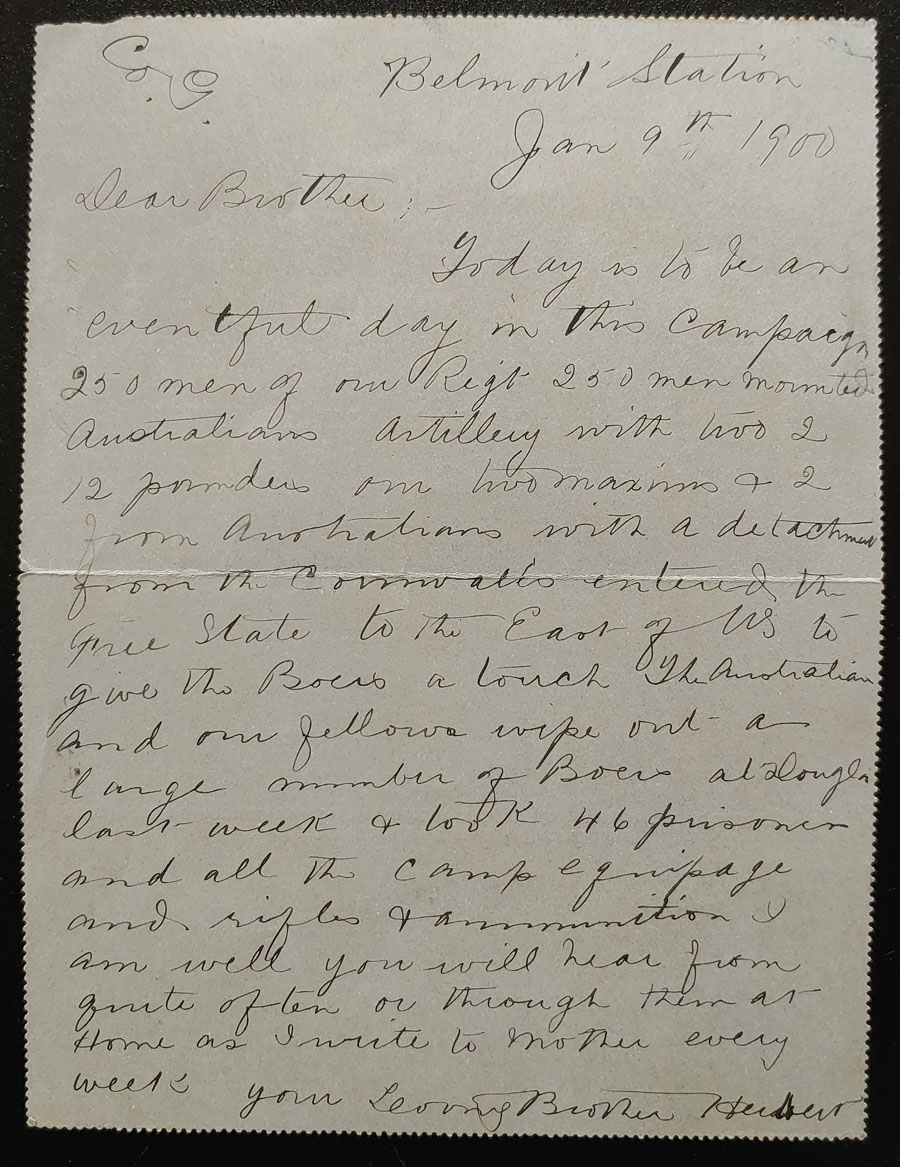 Co. G.
Belmont Station
Jan 9th 1900
Dear Brother; -
Today is to be an
eventful day in this Campaign
250 men of our Regt 250 men mounted
Australians Artillery with two 2
12 pounders our two maxims & 2
from Australians with a detachment
from the Cornwalls entered the
Free State to the East of US to
give the Boers a touch The Australian
and our fellows wipe out a
large number of Boers at Douglas
last week & took 46 prisoner
and all the camp equipage
and rifles & ammunition I
am well you will hear from
quite often or through them at
Home as I write to Mother every
week your Loving Brother Herbert